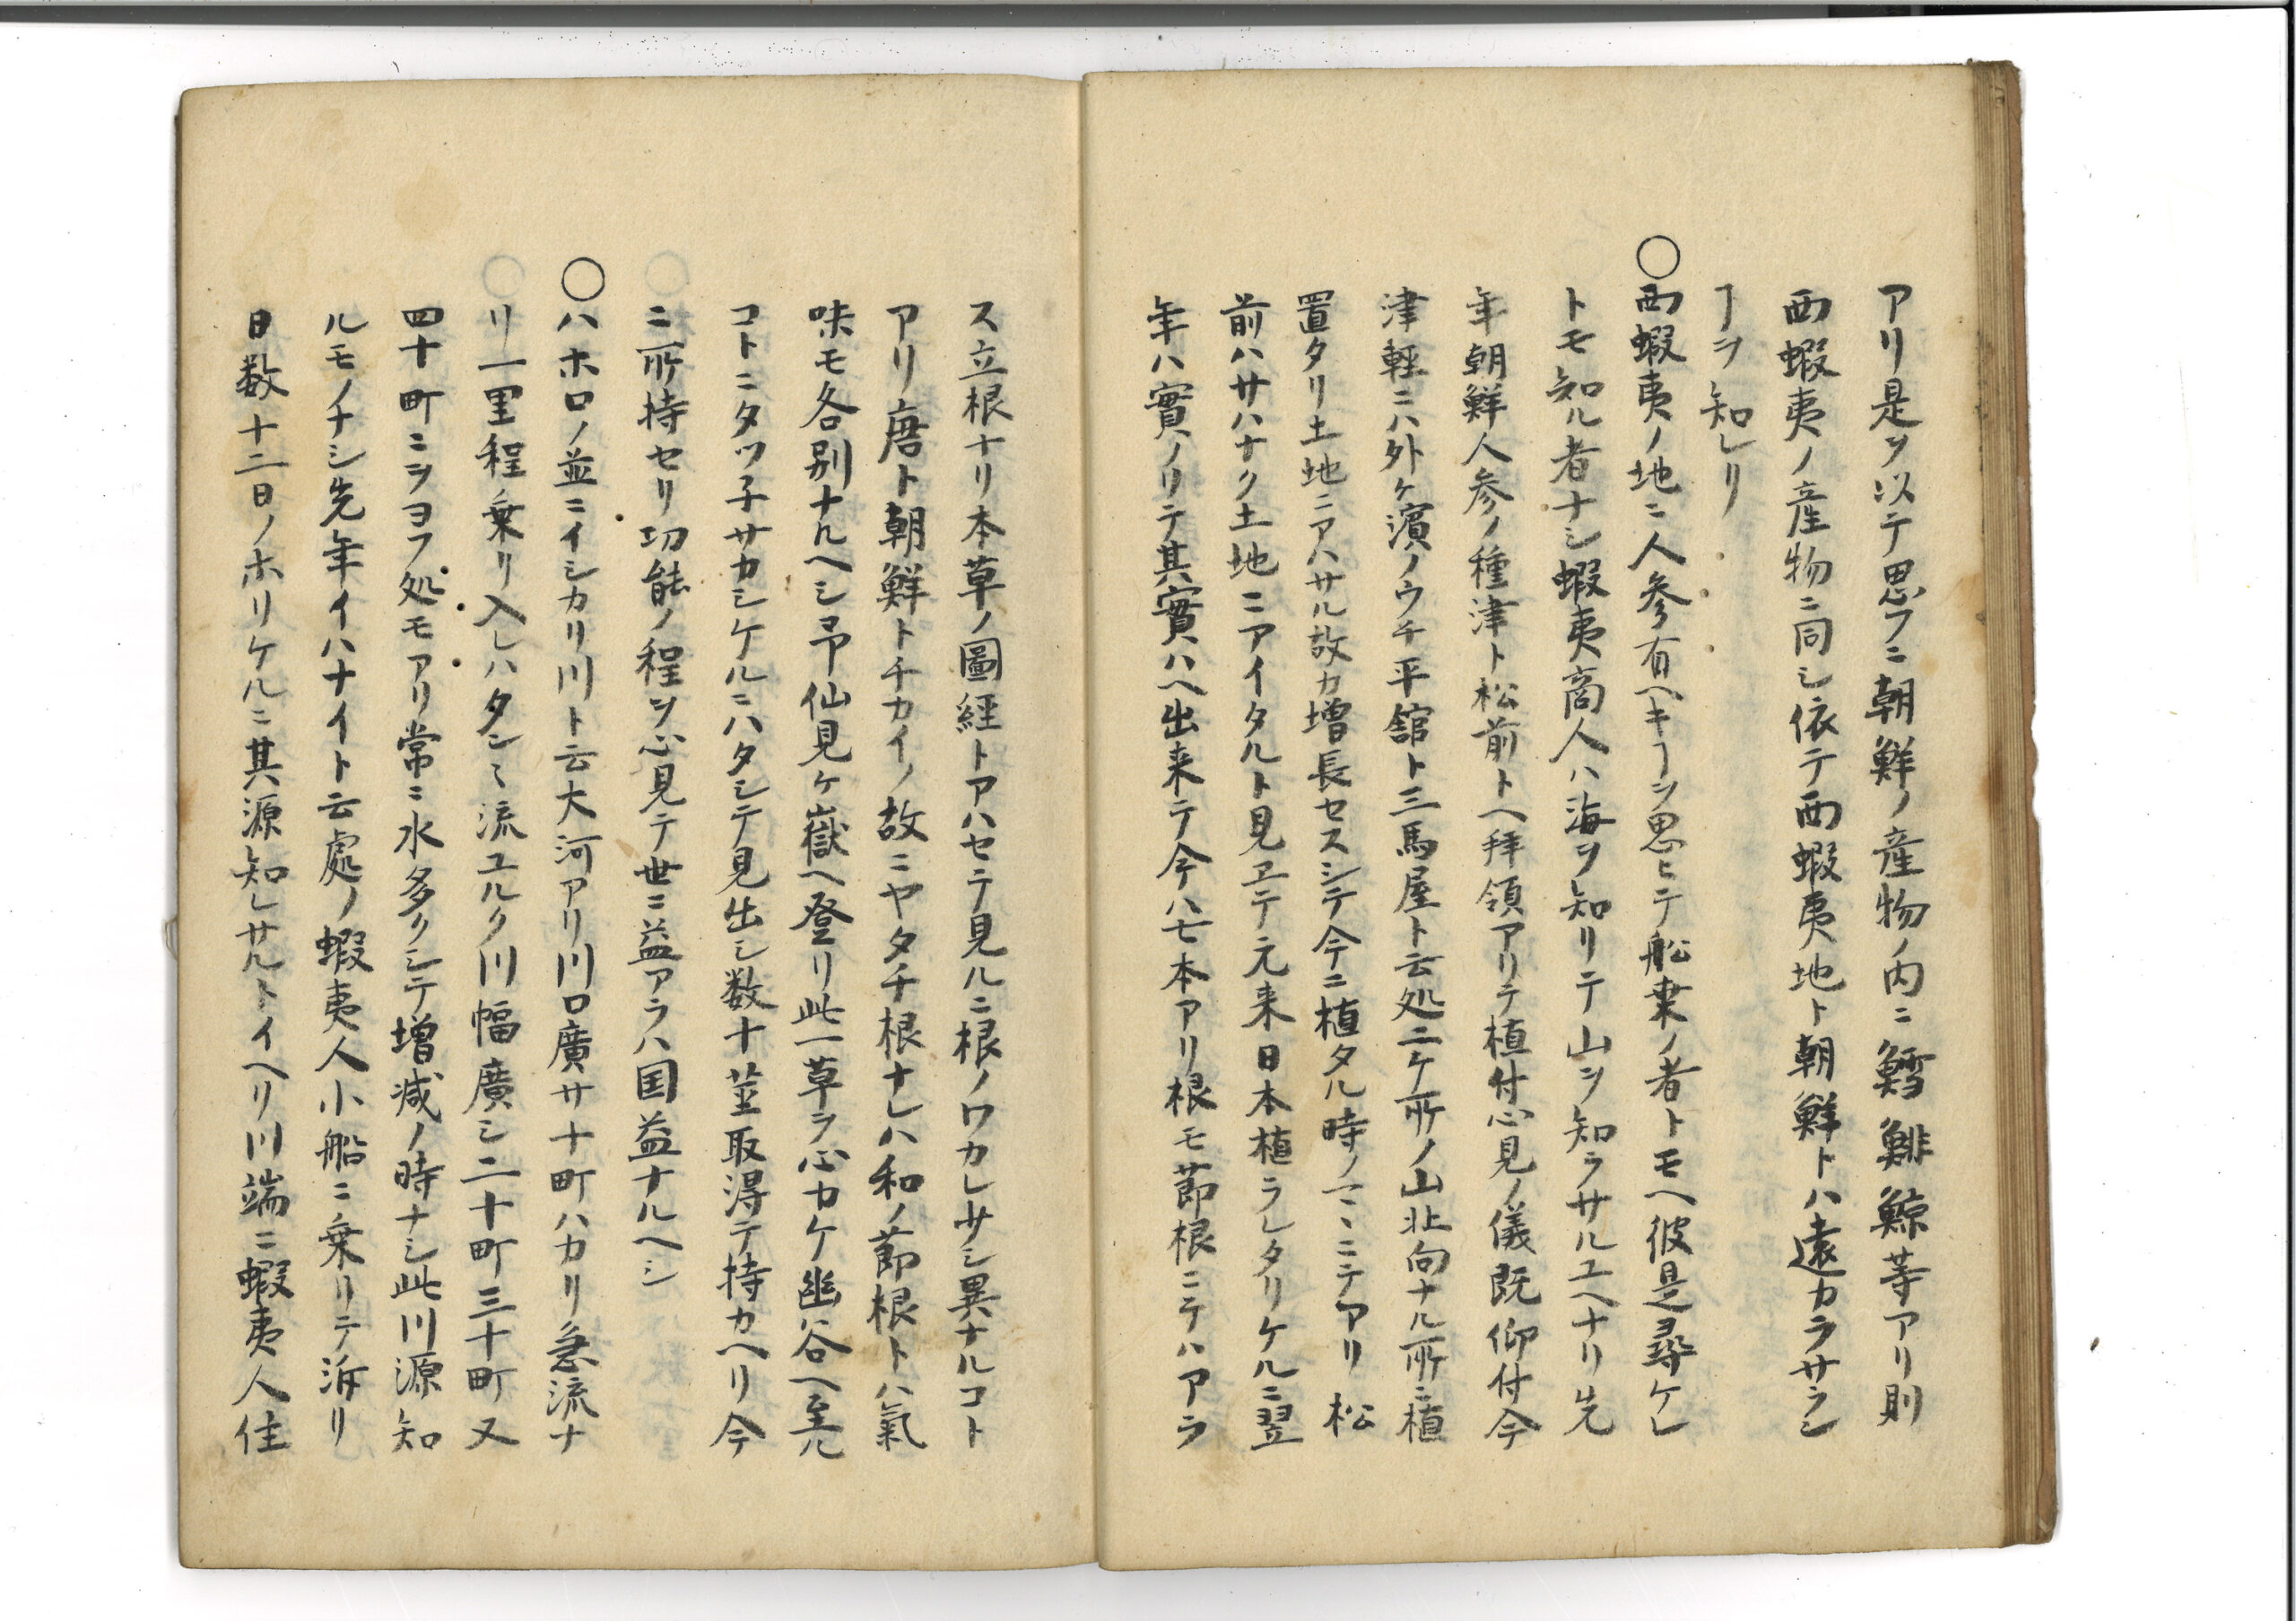 アリ是ヲ以テ思フニ朝鮮ノ産物ノ内ニ鱈鯡鯨等アリ則
西蝦夷ノ産物ニ同シ依テ西蝦夷地ト朝鮮トハ遠カラサラシ
ヿヲ知レリ
○西蝦夷ノ地ニ人参有ヘキヿヲ思ヒテ船乗ノ者トモヘ彼是尋ケレ
トモ知ル者ナシ蝦夷商人ハ海ヲ知リテ山ヲ知ラサルユヘナリ先
年朝鮮人参ノ種津ト松前トヘ拝領アリテ植付心見ノ儀既仰付今
津軽ニハ外ケ濱ノウチ平舘ト三馬屋ト云処二ケ所ノ山北向ナル所ニ植
置タリ土地ニアハサル故カ増長セスシテ今ニ植タル時ノマヽニテアリ松
前ハサハナク土地ニアイタルト見ヱテ元来日本植ラレタリケルニ翌
年ハ實ノリテ其實ハヘ出来テ今ハ七本アリ根モ節根ニテハアラ
ス立根ナリ本草ノ圖経トアハセテ見ルニ根ノワカレサシ異ナルコト
アリ唐ト朝鮮トチカイノ故ニヤタチ根ナレハ和ノ節根トハ氣
味モ各別ナルヘシ予仙見ケ嶽ヘ登リ此一草ヲ心カケ幽谷ヘ至ル
コトニタツ子サカシケルニハタシテ見出シ数十茎取得テ持カヘリ今
ニ所持セリ功能ノ程ヲ心見テ世ニ益アラハ国益ナルヘシ
○ハホロノ並ニイシカリ川ト云大河アリ川口廣サ十町ハカリ急流ナ
リ一里程乗リ入レハタン〻流ユルク川幅廣シ二十町三十町又
四十町ニヲヨフ処モアリ常ニ水多クシテ増減ノ時ナシ此川源知
ルモノナシ先年イハナイト云處ノ蝦夷人小船ニ乗リテ泝リ
日数十二日ノホリケルニ其源知レサルトイヘリ川端ニ蝦夷人住